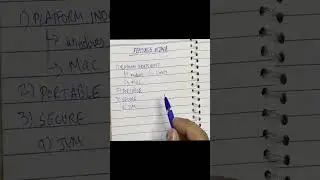 1) PLATFORM IND
↳ Windows
↳ MAC
2) PORTABLE
3) SECURE
a) JVM
FEATURES OF JAVA
1) PLATFORM INDEPENDENT
↳ Windows
↳ MAC
2) PORTABLE
3) SECURE
a) JVM